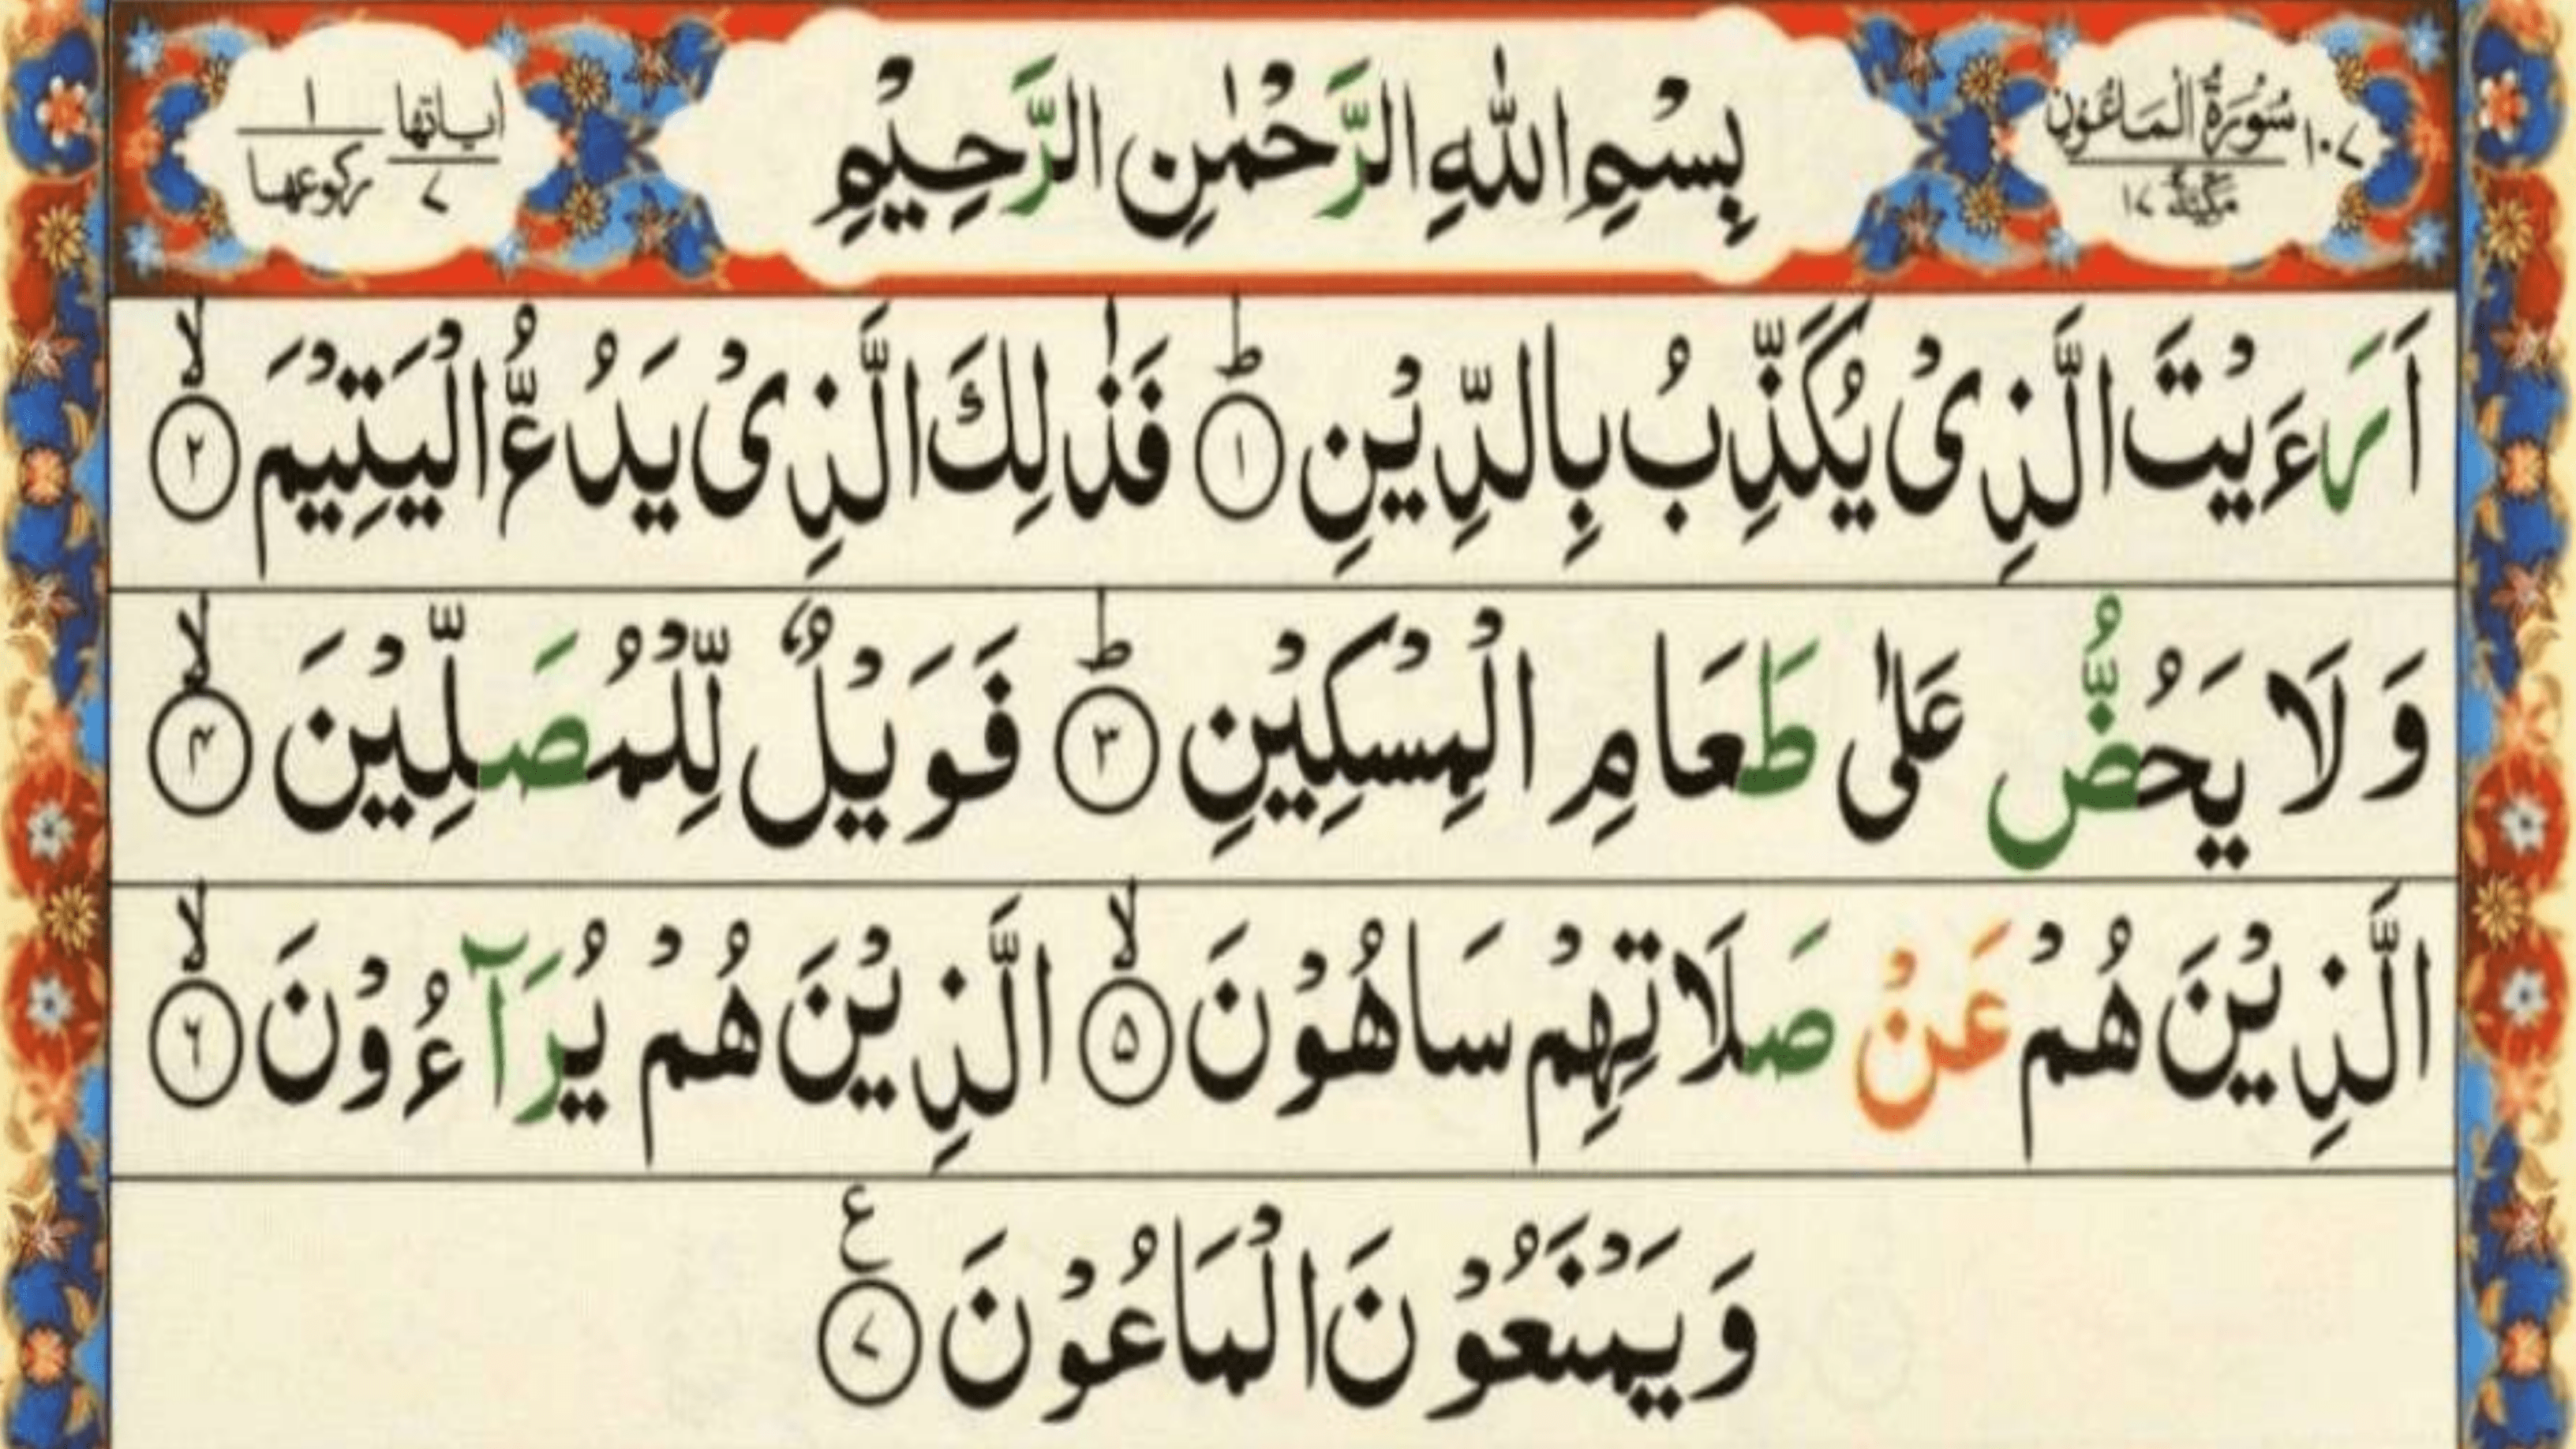 ١٠٧ سُوْرَةُ الْمَاعُوْنِ
مَكِّيَّةٌ ١٧
بِسْمِ اللّٰهِ الرَّحْمٰنِ الرَّحِيْمِ
اٰيَاتُهَا ٧
١ رُكُوعُهَا
اَرَءَيْتَ الَّذِىْ يُكَذِّبُ بِالدِّيْنِ ؕ‏ ﴿۱﴾ فَذٰلِكَ الَّذِىْ يَدُعُّ الْيَتِيْمَ ۙ‏ ﴿۲﴾
وَ لَا يَحُضُّ عَلٰى طَعَامِ الْمِسْكِيْنِ ؕ‏ ﴿۳﴾ فَوَيْلٌ لِّلْمُصَلِّيْنَ ۙ‏ ﴿۴﴾
الَّذِيْنَ هُمْ عَنْ صَلَاتِهِمْ سَاهُوْنَ ۙ‏ ﴿۵﴾ الَّذِيْنَ هُمْ يُرَآءُوْنَ ۙ‏ ﴿۶﴾
وَيَمْنَعُوْنَ الْمَاعُوْنَ ﴿۷﴾ ع